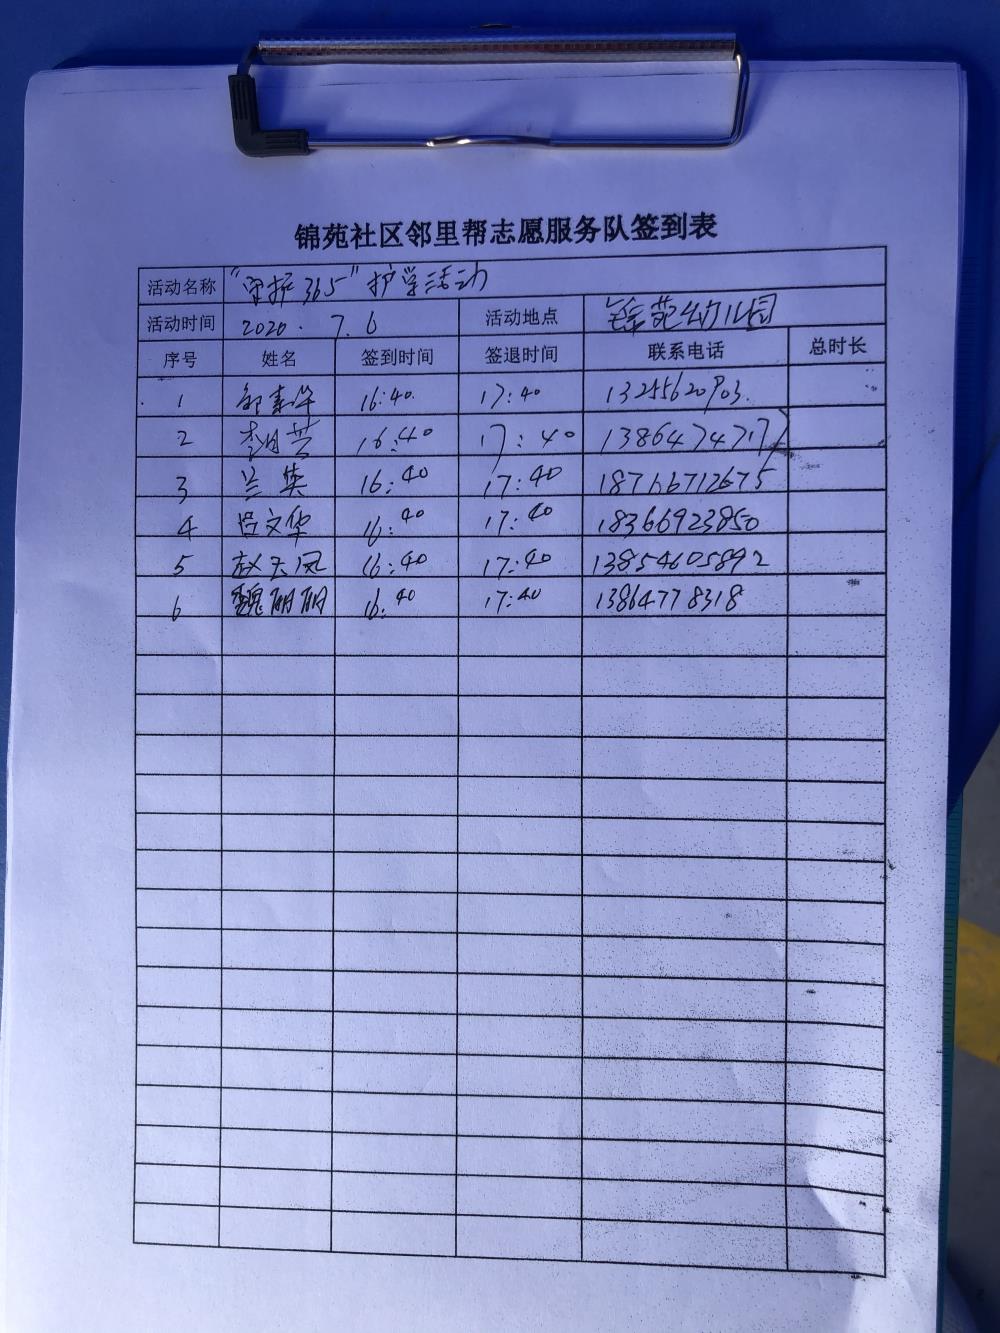 锦苑社区邻里帮志愿服务队签到表
活动名称 "守护365"护学活动
活动时间 2020.7.6 活动地点 锦苑幼儿园
序号 姓名 签到时间 签退时间 联系电话 总时长
1 16:40 17:40
2 16:40 17:40
3 兰英 16:40 17:40 18766712675
4 吕文华 16:40 17:40 18366923850
5 赵天凤 16:40 17:40 13854605892
6 魏丽丽 16:40 17:40 13864778318